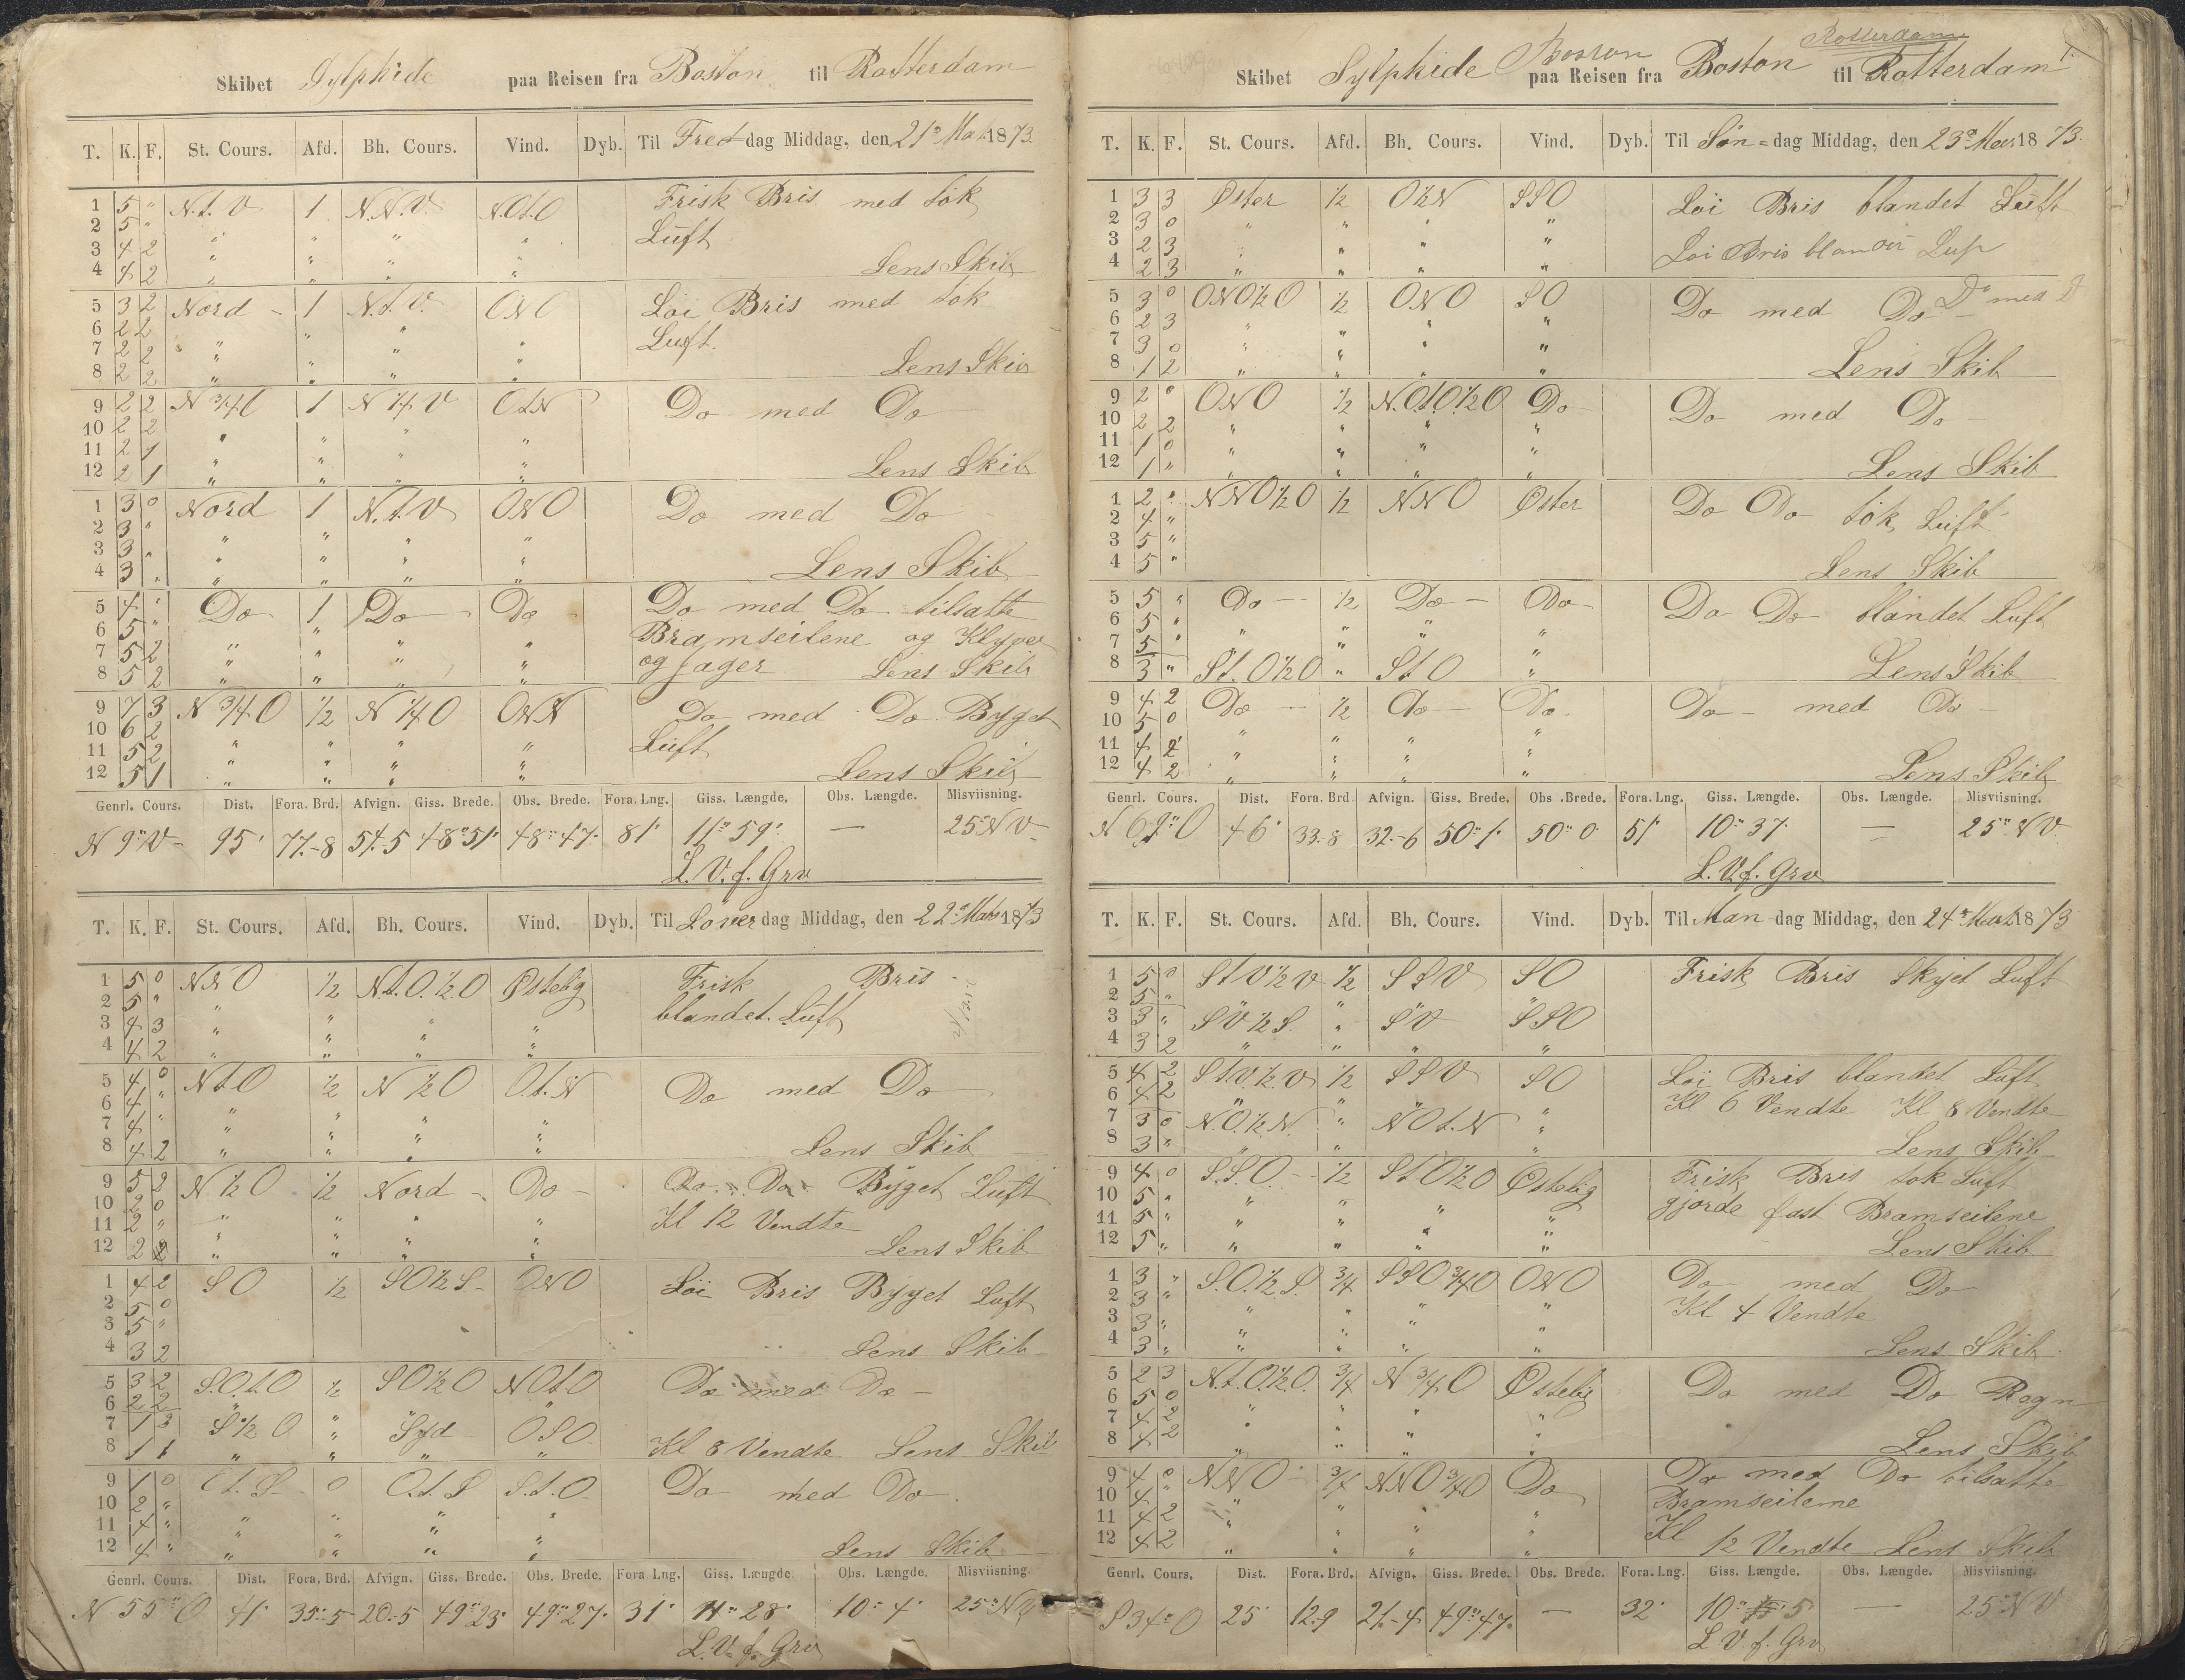 Skibet Sylphide paa Reisen fra Boston til Rotterdam
T. K. F. St. Cours. Afd. Bh. Cours. Vind. Dyb. Til Freddag Middag, den 21° Mat. 1873.
1 5 " N.t.V 1 N.N.V. N.Ot.O Frisk Bris med tök
2 5 " " " " " Lüft
3 4 2 " " " "
4 4 2 " " " " Lens Skib
5 3 2 Nord - 1 N.t.V. ONO Löi Bris med tök
6 2 2 " " " " Luft.
7 2 2 " " " "
8 2 2 " " " " Lens Skib
9 2 2 N 3/4 O 1 N 1/4 V OtN Do - med Do
10 2 2 " " " "
11 2 1 " " " "
12 2 1 " " " " Lens Skib
1 3 0 Nord 1 N.t.V ONO Do med Do -
2 3 " " " " "
3 3 " " " " "
4 3 " " " " " Lens Skib
5 4 " Do 1 Do - Do - Do med Do tilsatte
6 5 " " " " " Bramseilene og Klyver
7 5 2 " " " " og Jager
8 5 2 " " " " Lens Skib
9 7 3 N 3/4 O 1/2 N 1/4 O OtN Do med Do Byget
10 6 2 " " " " Lüft
11 5 2 " " " "
12 5 1 " " " " Lens Skib
Genrl. Cours. Dist. Fora. Brd. Afvign. Giss. Brede. Obs. Brede. Fora. Lng. Giss. Længde. Obs. Længde. Misviisning.
N 9°V - 95' 77.-8 54.-5 48°51' 48°47' 81' 11°59' — 25°NV -
L.V.f. Grv
T. K. F. St. Cours. Afd. Bh. Cours. Vind. Dyb. Til Löverdag Middag, den 22° Mats 1873
1 5 0 NNO 1/2 N.t.O.1/2.O Østelig Frisk Bris -
2 5 " " " " " blandet Lüft
3 4 3 " " " "
4 4 2 " " " "
5 4 0 NtO 1/2 N 1/2 O O.t.N Do med Do
6 4 " " " " "
7 4 " " " " "
8 4 2 " " " " Lens Skib
9 5 2 N 1/2 O 1/2 Nord - Do - Do Do Byget Luft
10 2 0 " " " " Kl 12 Vendte
11 2 " " " " "
12 2 2 " " " " Lens Skib
1 4 2 SO 1/2 SO1/2S - ONO Löi Bris Byget Luft
2 5 0
3 5 "
4 3 2 Lens Skib
5 3 2 S.O.t.O 1/2 SO1/2O NOt.O Do med Do -
6 2 2 " "
7 1 3 S1/2 O " Syd OSO
8 1 1 " " " " Kl 8 Vendte Lens Skib
9 1 0 Ot.S - 0 O.t.S S.t.O - Do med Do
10 2 " " " " "
11 4 " " " " "
12 4 " " " " " Lens Skib
Genrl. Cours. Dist. Fora. Brd. Afvign. Giss. Brede. Obs. Brede. Fora Lng. Giss. Længde Obs. Længde. Misviisning.
N 55°O 41' 35.-5 20.-5 49°23' 49°27' 31' 11°28' 10°4' 25°NV
L.V.f. Grv
Rotterdam
Boston
Skibet Sylphide paa Reisen fra Boston til Rotterdam
T. K. F. St. Cours. Afd. Bh. Cours. Vind. Dyb. Til Søn-dag Middag, den 23° Mars 1873.
1 3 3 Øster 1/2 OtN SSO Löi Bris blandet Lüft
2 3 0 " " " "
3 2 3 " " " " Loi Bris
4 2 3 " " " "
5 3 0 ONO1/2O 1/2 ONO SO Do med Do - Do med D
6 2 3 " " " "
7 3 0 " " " "
8 1 2 " " " " Lens Skib
9 2 " ONO 1/2 N.O.t.O.1/2O Do Do med Do -
10 2 2 " " " "
11 1 0 " " " "
12 1 " " " " " Lens Skib
1 2 " NNO1/2O 1/2 NNO Øster Do Do tök Lüft
2 4 "
3 5 "
4 5 " Lens Skib
5 5 " Do - 1/2 Do - Do - Do Do blandet Luft
6 5 " " " " "
7 5 " " " " "
8 3 " St.O1/2O " St.O " Lens Skib
9 4 2 Do - 1/2 Do - Do - Do - med Do -
10 5 0 " " " "
11 4 2 " " " "
12 4 2 " " " " Lens Skib
Genrl. Cours. Dist. Fora. Brd Afvign. Giss. Brede. Obs. Brede. Fora. Lng. Giss. Længde. Obs. Længde. Misviisning.
46' 33.-8 32.-6 50°1' 50°0' 51' 10°37' — 25°NV
L.V.f. Grv
T. K. F. St. Cours. Afd. Bh. Cours. Vind. Dyb. Til Man-dag Middag, den 24° Mart. 1873
1 5 0 StV1/2V 1/2 SSV SO Frisk Bris Skyet Luft
2 5 " " " "
3 3 " SV1/2S. " SV SSO
4 3 2 " " " "
5 4 2 St.V.1/2V 1/2 SSV SO Löi Bris blandet Lüft
6 4 2 " " Kl 6 Vendte Kl 8 Vendte
7 3 0 N.O.1/2.N. " NOt.N "
8 3 " " " " " Lens Skib
9 4 0 S.S.O. - 1/2 StO1/2O Østelig Frisk Bris tok Lüft
10 5 " " " " " gjorde fast Bramseilene
11 5 " " " " "
12 5 " " " " " Lens Skib
1 3 " S.O.1/2.S. 3/4 SSO3/4O ONO Do - med Do -
2 3 " " " " " Kl 4 Vendte
3 3 " " " " "
4 3 " " " " " Lens Skib
5 2 3 N.t.O.1/2O. 3/4 N 3/4 O Østelig Do med Do Regn
6 5 0 " " " "
7 4 2 " " " "
8 4 2 " " " " Lens Skib
9 4 0 NNO - 3/4 NNO3/4O Do Do med Do tilsatte
10 4 " " " " " Bramseilene
11 4 2 " " " " Kl
12 4 2 " " " " 12 Vendte Lens Skib
Genrl. Cours. Dist. Fora. Brd. Afvign. Giss. Brede. Obs. Brede. Fora. Lng. Giss. Længde. Obs. Længde. Misviisning.
S 34°O 25' 12.9 21.-4 49°47' — 32' 10° 5 — 25°NV
L.V.f. Grv